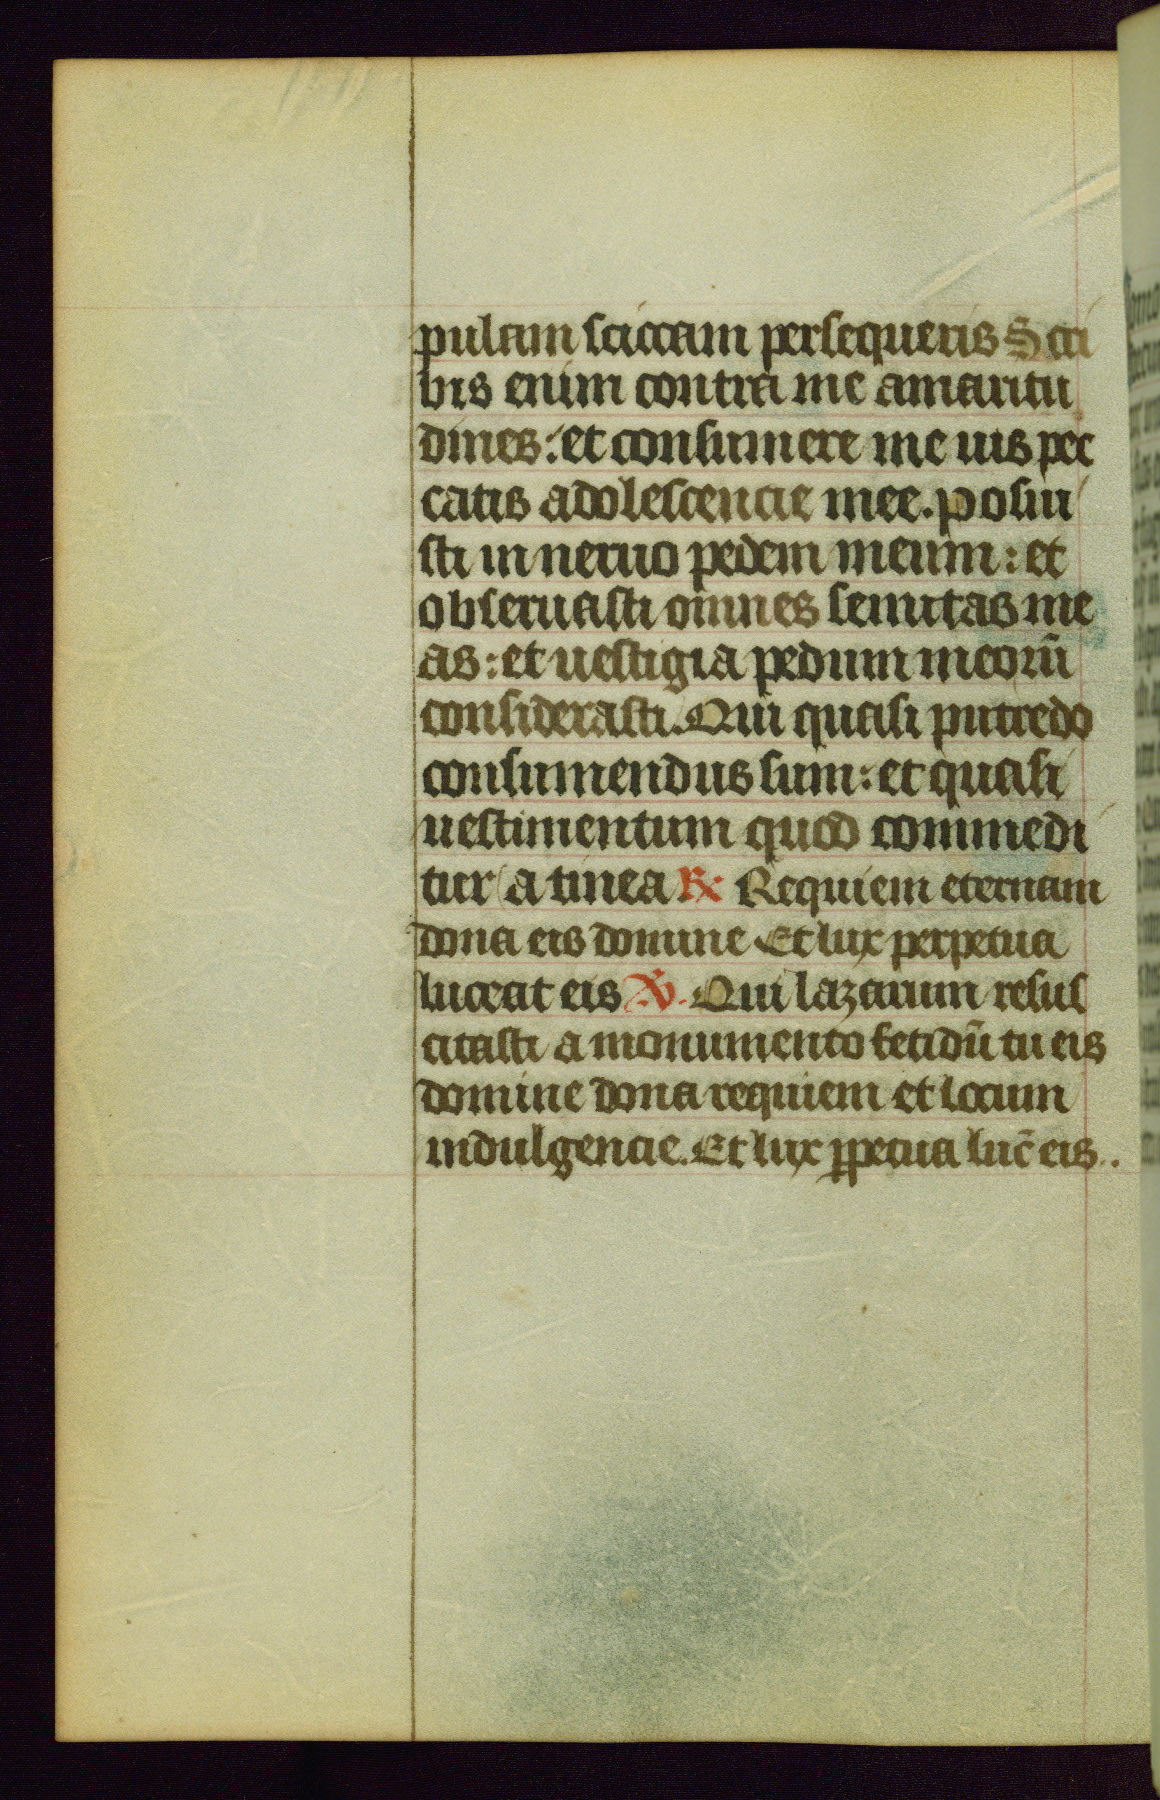 pulam siccam persequeris Scri
bis enim contra me amaritu
dines: et consumere me uis pec
catis adolescencie mee. Posui
sti in neruo pedem meum: et
obseruasti omnes semitas me
as: et uestigia pedum meorū
considerasti. Qui quasi putredo
consumendus sum: et quasi
uestimentum quod commedi
tur a tinea ℟ Requiem eternam
dona eis domine Et lux perpetua
luceat eis ℣. Qui lazarum resus
citasti a monumento fetidū tu eis
domine dona requiem et locum
indulgencie. Et lux ꝑpetua luc̄ eis.